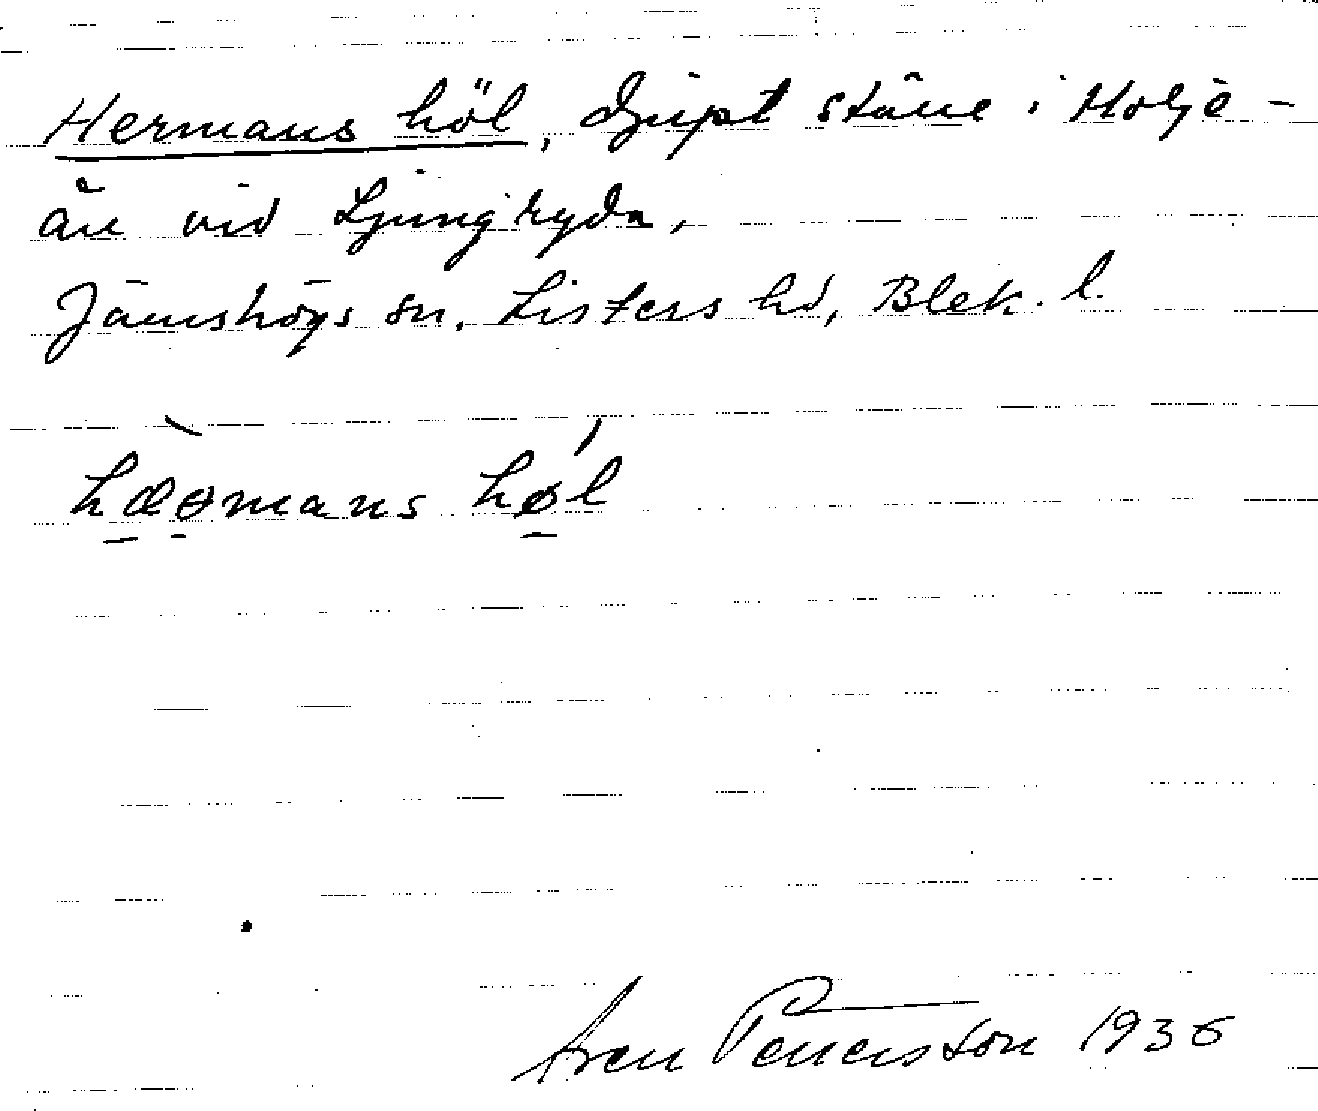 Hermans höl, djupt ställe i Holje-
ån vid Ljungryda,
Jämshögs sn. Listers hd, Blek. l.
hæɵmans høl
Sven Pettersson 1936